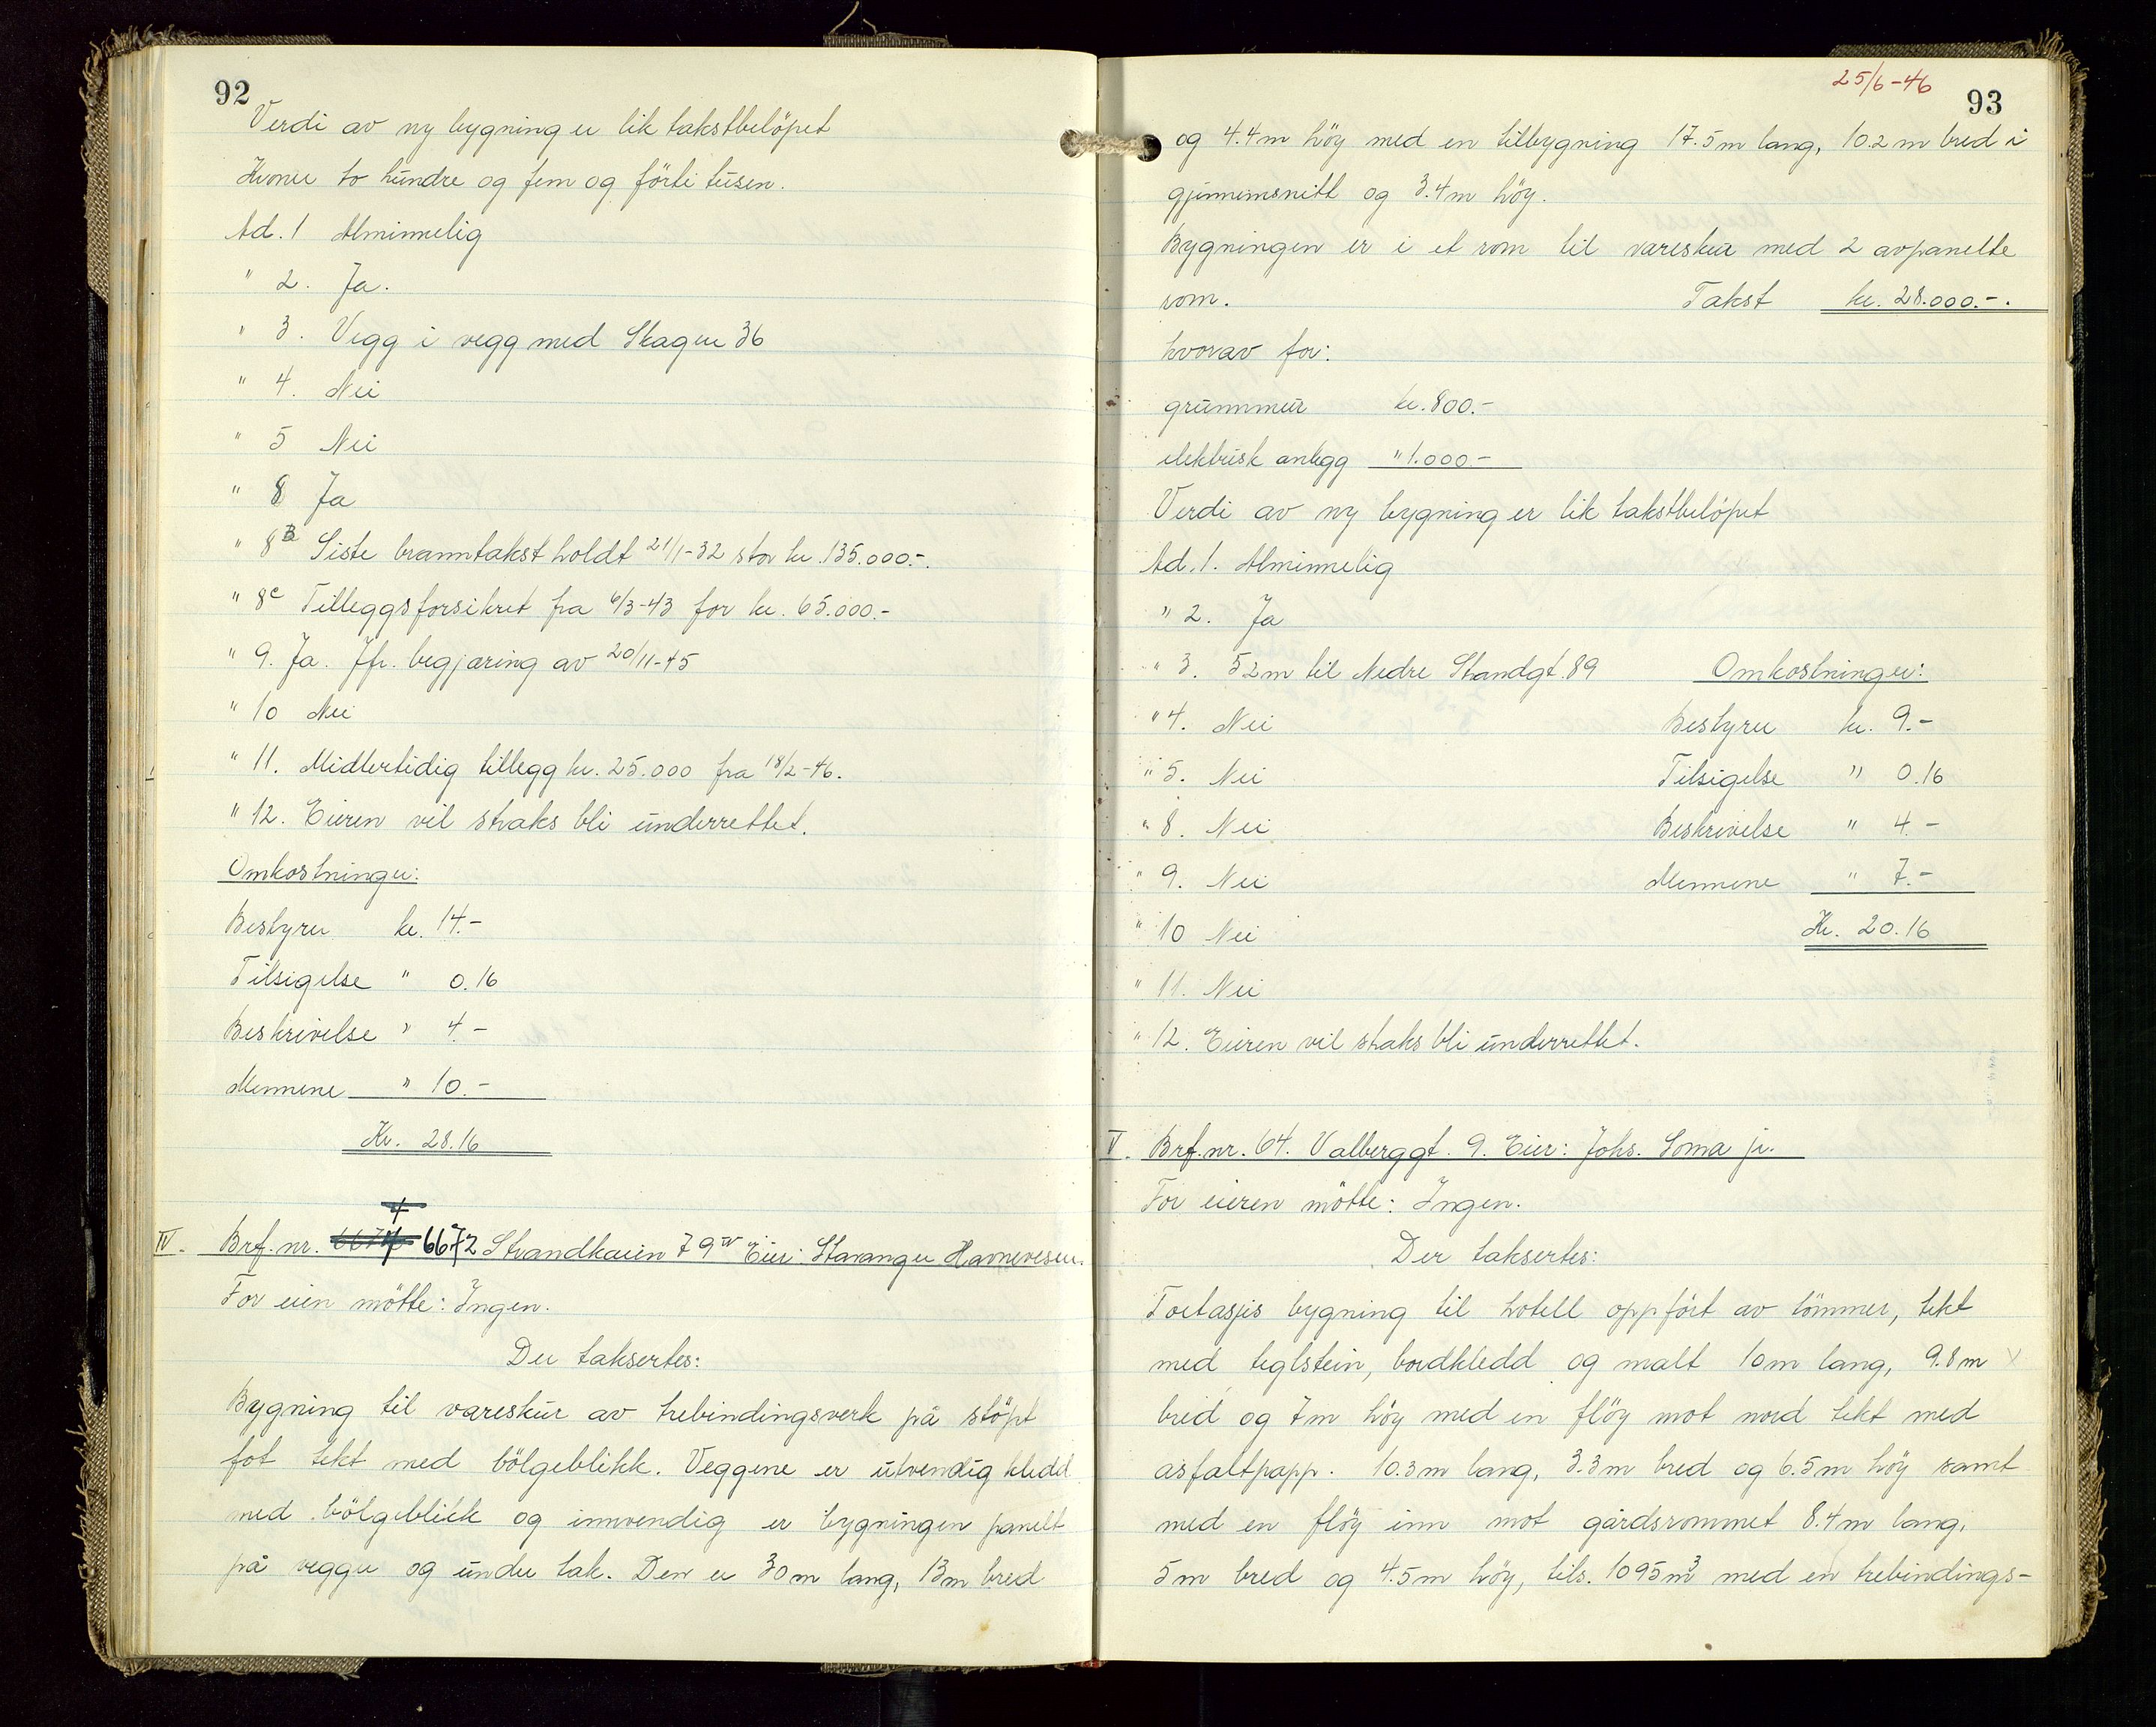 92
Verdi av ny bygning er lik takstbelöpet
Kroner to hundre og fem og förti tusen.
Ad. 1 Alminnelig
" 2. Ja.
" 3. Vegg i vegg med Skagen 36
" 4. Nei
" 5 Nei
" 8 Ja
" 8B Siste branntakst holdt 21/1-32 stor kr. 135.000.-.
" 8c Tilleggsforsikret fra 6/3-43 for kr. 65.000.-
" 9. Ja. Jfr. begjæring av 20/11-45
" 10 Nei
" 11. Midlertidig tillegg kr. 25.000 fra 18/2-46.
" 12. Eieren vil straks bli underrettet.
Omkostninger:
Bestyrer kr. 14.-
Tilsigelse " 0.16
Beskrivelse " 4.-
Mennene " 10.-
Kr. 28.16
IV. Brf. nr. 6672 Strandkaien 79 IV Eier: Stavanger Havnevesen.
For eien mötte: Ingen.
Der taksertes:
Bygning til vareskur av trebindingsverk på stöpt
fot tekt med bölgeblikk. Veggene er utvendig kledd
med bölgeblikk og innvendig er bygningen panelt
på vegger og under tak. Den er 30m lang, 13m bred
25/6-46
93
og 4.4m höy med en tilbygning 17.5m lang, 10.2m bred i
gjennemsnitt og 3.4m höy.
Bygningen er i et rom til vareskur med 2 avpanelte
rom. Takst kr. 28.000.-.
hvorav for:
grunnmur kr. 800.-
elektrisk anlegg " 1.000.-
Verdi av ny bygning er lik takstbelöpet
Ad. 1. Alminnelig
" 2. Ja
" 3. 52m til Nedre Strandgt. 89 Omkostninger:
" 4. Nei Bestyrer kr. 9.-
" 5. Nei Tilsigelse " 0.16
" 8. Nei Beskrivelse " 4.-
" 9. Nei Mennene " 7.-
" 10 Nei Kr. 20.16
" 11. Nei
" 12. Eieren vil straks bli underrettet.
V. Brf. nr. 64. Valberggt. 9. Eier: Johs. Soma jr.
For eieren mötte: Ingen.
Der taksertes:
Toetasjes bygning til hotell oppfört av tömmer, tekt
med teglstein, bordkledd og malt 10m lang, 9.8m
bred og 7m höy med en flöy mot nord tekt med
asfaltpapp. 10.3m lang, 3.3m bred og 6.5m höy samt
med en flöy inn mot gårdsrommet 8.4m lang,
5m bred og 4.5m höy, tils. 1095m³ med en trebindings-